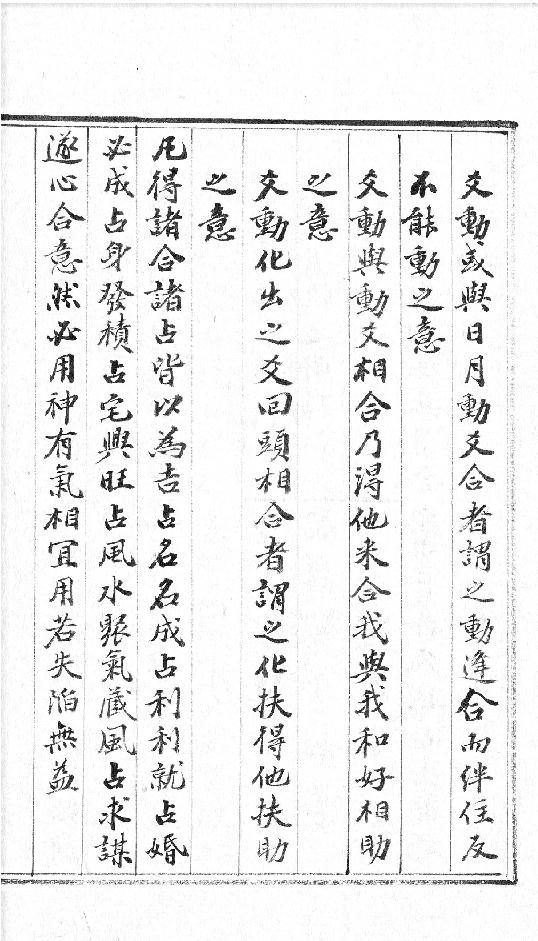 爻動或與日月動爻合者謂之動逢合而絆住反
不能動之意
爻動與動爻相合乃得他来合我與我和好相助
之意
爻動化出之爻回頭相合者謂之化扶得他扶助
之意
凡得諸合諸占皆以為吉占名名成占利利就占婚
必成占身發積占宅興旺占風水聚氣藏風占求謀
遂心合意然必用神有氣相宜用若失陷無益